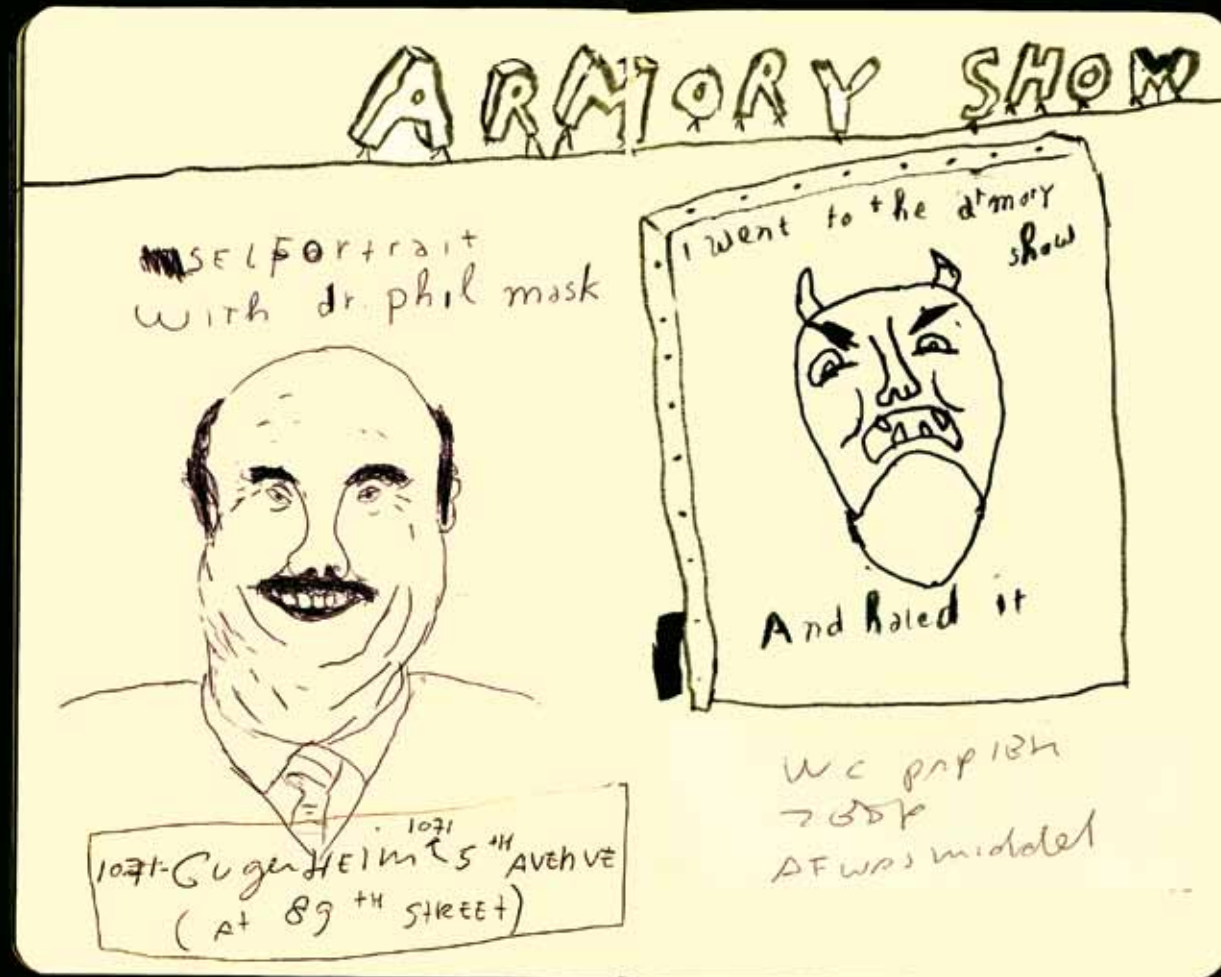 ARMORY SHOW
SELFOrtrait
with dr. phil mask
I went to the armory
show
And hated it
1071-GugenHEim 1071 5TH AVENUE
(At 89TH STREET)
WC papier
zeep
AFWASmiddel